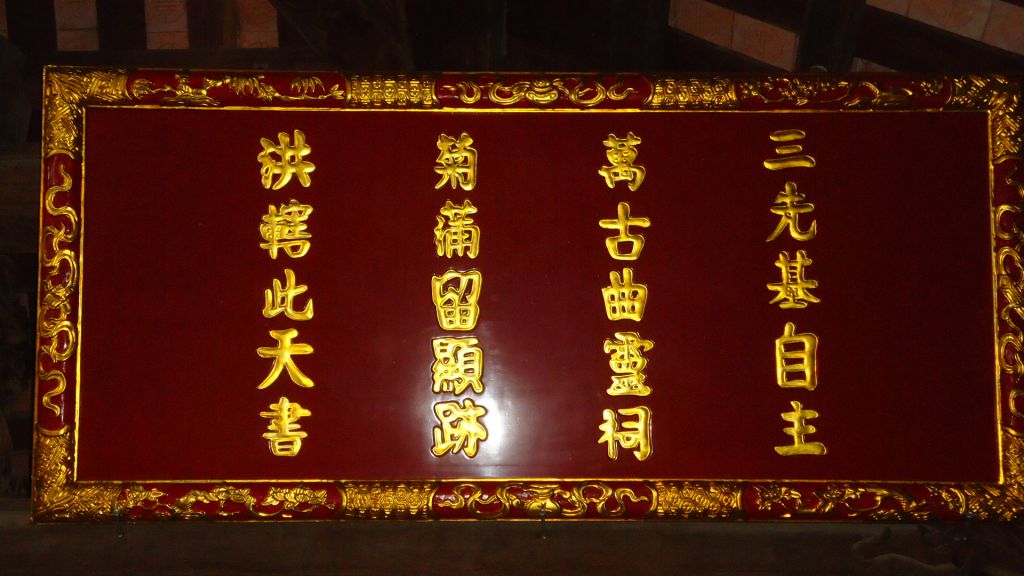 三先基自主
萬古曲靈祠
菊蒲留顯跡
洪轄此天書